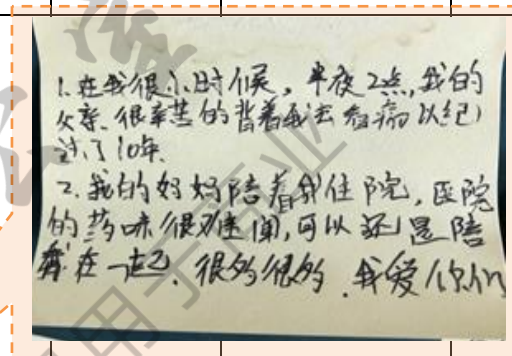 1.在我很小时候，半夜2点，我的
父亲、很辛苦的背着我去看病以纪
过了10年.
2.我的妈妈陪着我住院，医院
的药味很难闻，可以还是陪
着在一起、很多很多.我爱你们
用于商业